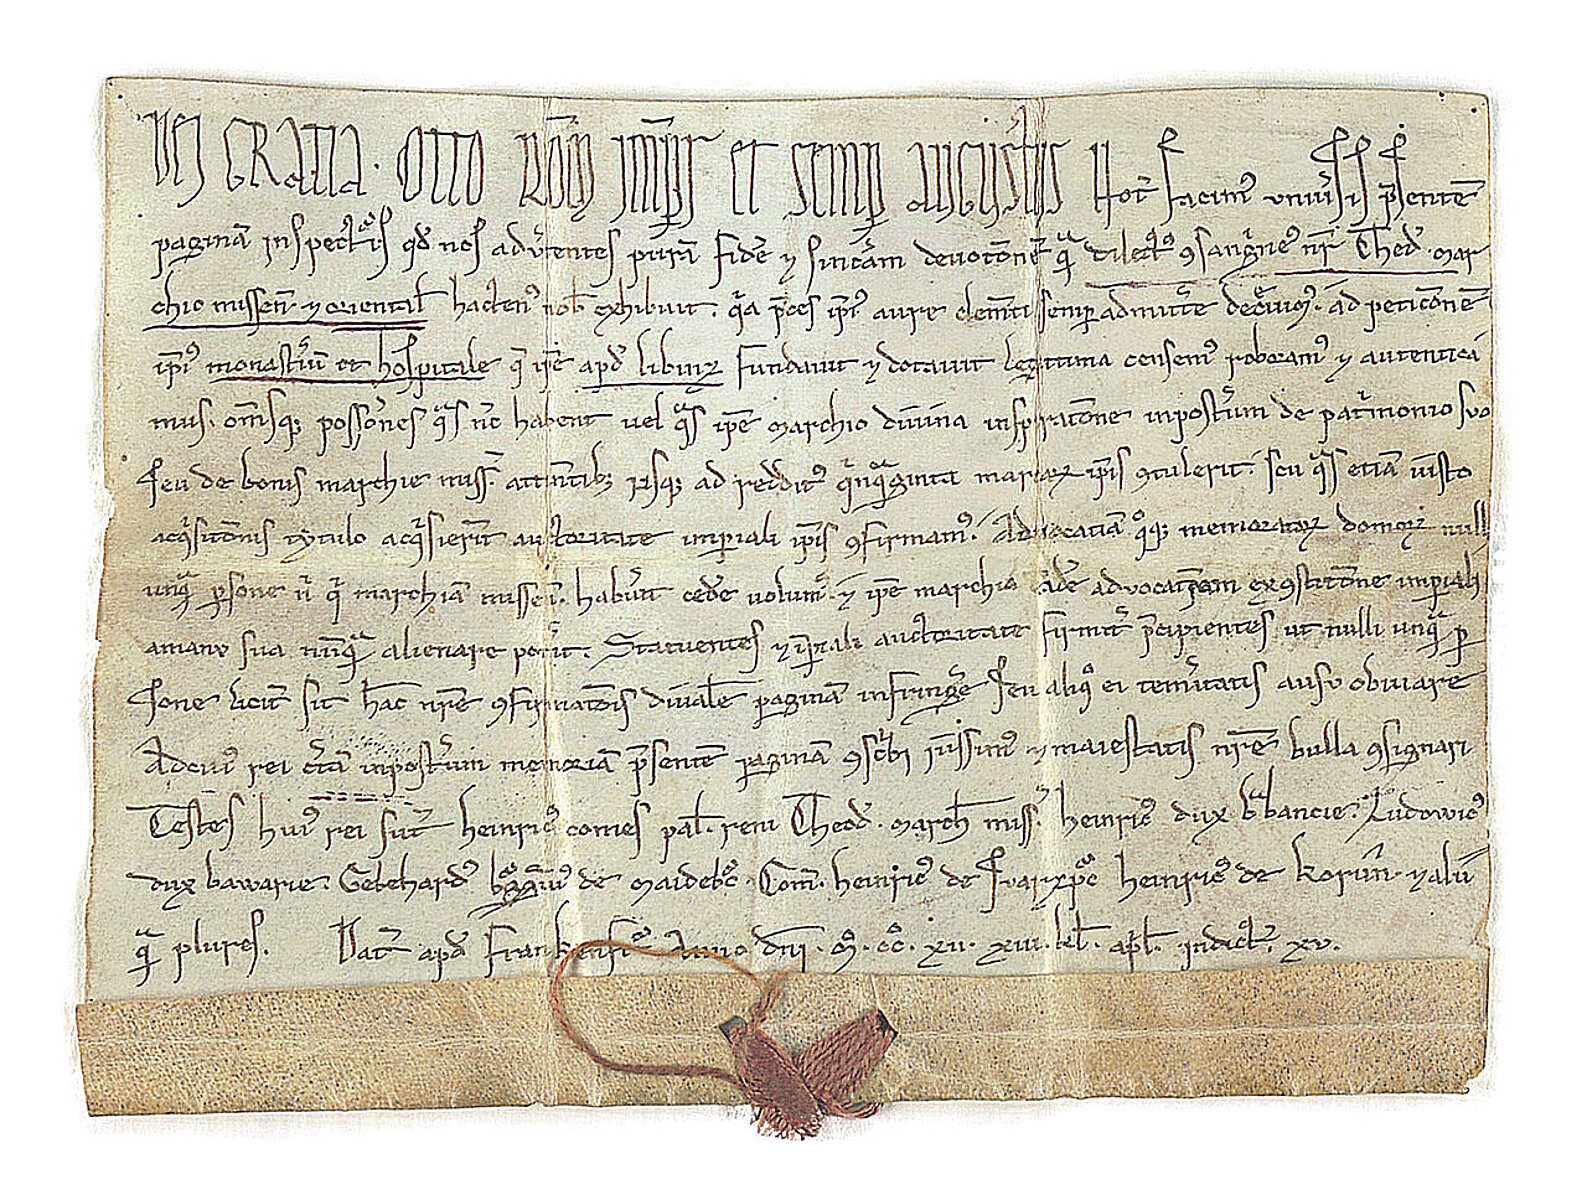 DEI GRATIA. OTTO ROM IMPR ET SEMP AUGUSTUS Not facim uniusis psentem
paginā inspectis qd nos advtentes purā fidē ⁊ sincām devotonē quā dilect 9sanguine nr Theod. mar
chio missen ⁊ orientał hacten nob exhibuit. pces ipi aure clemti semp admitte ad peticonē
ipi monastiū et hospitale q ipe apd libuiz fundavit ⁊ dotavit legittima censem roboram ⁊ autentica
mus. omsq possones qs nc habent vel qs ipe marchio divina inspiratone inpostum de patmonio suo
seu de bonis marchie miss. attintib usq ad reddit qnqginta marcaꝝ ipis 9tulerit. seu qs etiam iusto
acqsitonis tytulo acqsierit auctoritate impiali ipis 9firmam. Advocatiā qoq memorataꝝ domoꝝ nulli
unq psone n q marchiam missen. habuit cede volum. ⁊ ipe marchio advocatiam ex 9stitutone impiali
amanu sua nunq alienare potit. Statuentes ⁊ impiali auctoritate firmit pcipientes ut nulli unq p
sone licit sit hac nre 9firmatonis paginam infringe seu aliq ei temitatis ausu obviare
Ad cui rei ctā inpostum memoriā psentē paginā 9scbi iussim ⁊ maiestatis nre bulla 9signari
Testes hui rei sut heinric comes pal. reni Theod. march miss. heinric dux bbancie. Ludowic
dux bawarie. Gebehard de Maidebc. Com. heinric de heinric de ⁊ alii
q plures. Dat apd Frankenfut Anno dni. M. CC. XII. XIII. kl. apl. indict. XV.